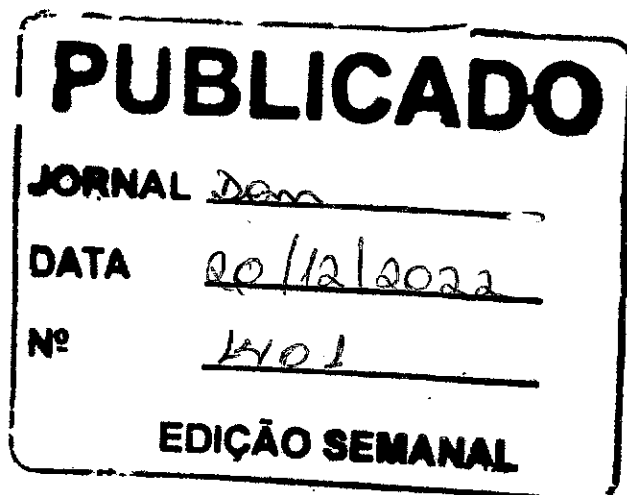 PUBLICADO
JORNAL Dom
DATA 20/12/2022
Nº
EDIÇÃO SEMANAL